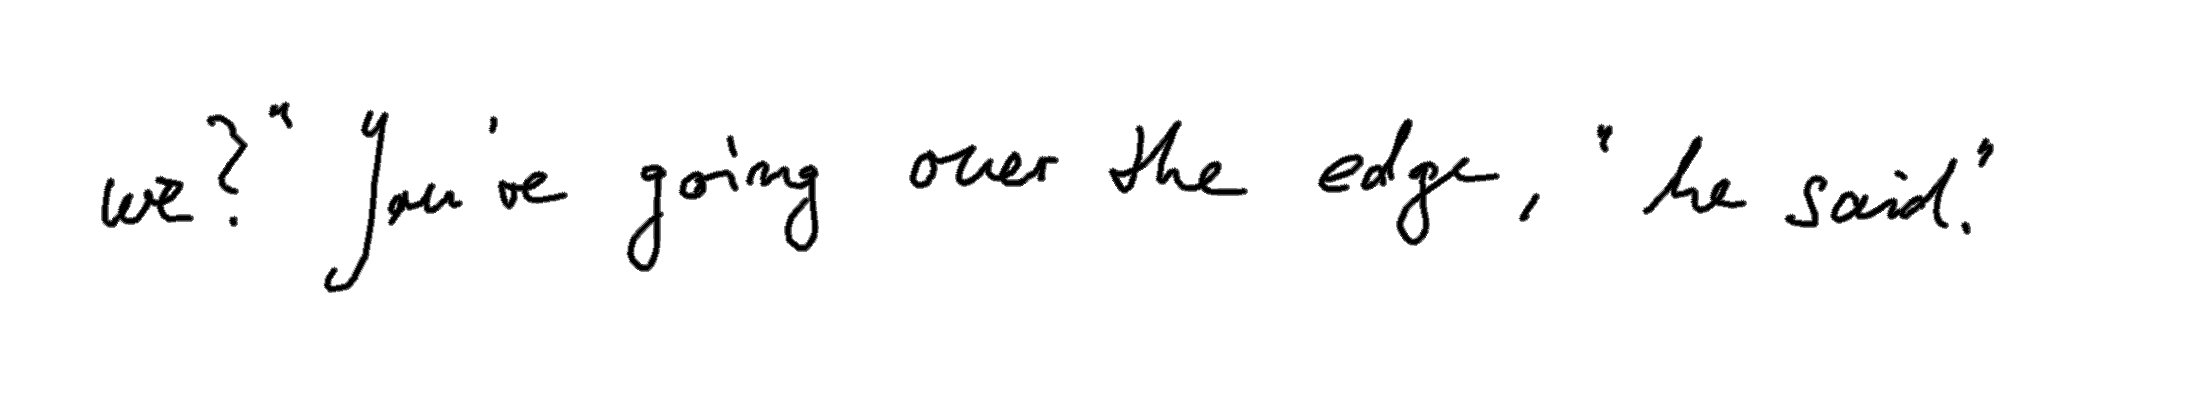 we?" You've going over the edge, "he said."